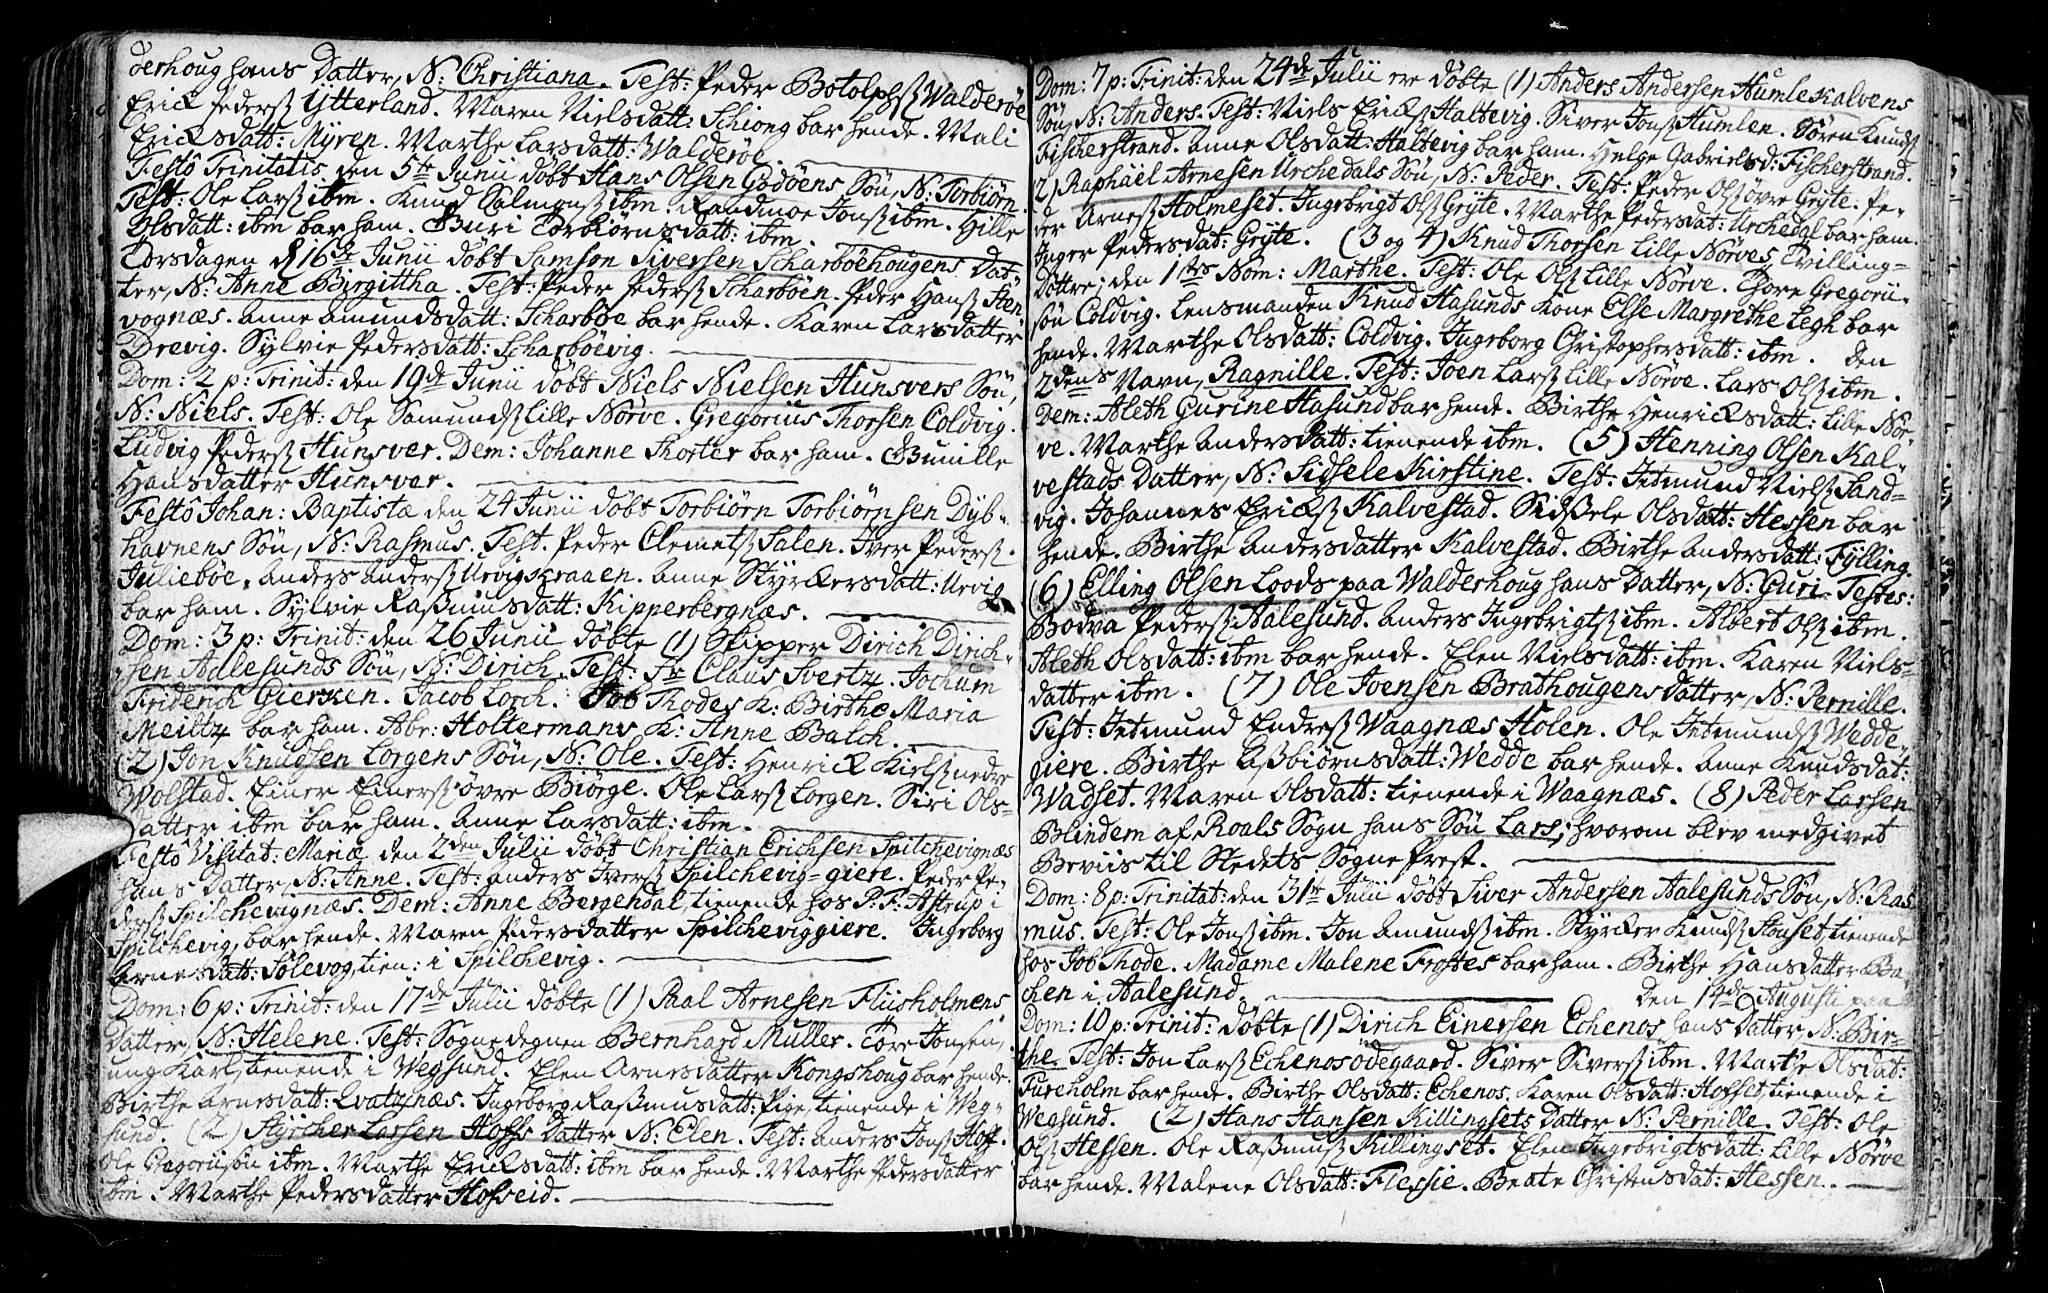 derhoug hans Datter, N: Christiana. Test: Peder Botolphs&#223; Walderöe
Erick Peders&#223; Ytterland. Maren Nielsdatt: Schiong bar hende. Mali
Ericksdatt: Myren. Marthe Larsdatt: Walderöe.
Festô Trinitatis den 5te Junii döbt Hans Olsen Godöens Sön, N: Torbiörn.
Test: Ole Lars&#223; ibm. Knud Salmons&#223; ibm. Randmoe Jons&#223; ibm. Hille
Olsdatt: ibm bar ham. Guri Torbiörnsdatt: ibm.
Torsdagen d 16de Junii döbt Samson Siversen Scharböehougens Dat-
ter, N: Anne Birgittha. Test: Peder Peders&#223; Scharböen. Peder Hans&#223; Sten
vognæs. Anne Amundsdatt: Scharböe bar hende. Karen Larsdatter
Drevig. Sylvie Pedersdatt: Scharböevig.
Dom: 2 p: Trinit: den 19de Junii döbt Niels Nielsen Hunsvers Sön,
N: Niels. Test: Ole Samunds&#223; Lille Nörve. Gregorius Thorsen Coldvig.
Ludvig Peders&#223; Hunsver. Dem: Johanne Thorter bar ham. Gunille
Hansdatter Hunsver.
Festô Johan: Baptistæ den 24 Junii döbt Torbiörn Torbiörnsen Dyb-
havnens Sön, N: Rasmus. Test. Peder Clemets&#223; Salen. Iver Peders&#223;.
Julieböe. Anders Anders&#223; Urvigskraaen. Anne Styrckersdatt: Urvig
bar ham. Sylvie Ra&#223;musdatt: Kipperbergnæs.
Dom: 3 p: Trinit: den 26 Junii döbte (1) Skipper Dirich Dirich-
sen Aalesunds Sön, N: Dirich. Test: Sr Claus Svertz. Jochum
Friderich Gierken. Jacob Lorch. Job Thodes K: Birthe Maria
Meiltz bar ham. Abr: Holtermans K: Anne Balch.
(2) Jon Knudsen Lorgens Sön, N: Ole. Test: Henrick Kiels&#223; nedre
Wolstad. Einer Einers&#223; övre Biörge. Ole Lars&#223; Lorgen. Siri Ols-
datter ibm bar ham. Anne Larsdatt: ibm.
Festô Visitat: Mariæ den 2den Julii döbt Christian Erichsen Spilchevignæs
hans Datter, N: Anne. Test: Anders Ivers&#223; Spilchevig=giere. Peder Pe-
ders&#223; Spilchevignæs. Dem: Anne Bergendal, tienende hos P. F: Astrup i
Spilchevig, bar hende. Maren Pedersdatter Spilcheviggiere. Ingeborg
Arnesdatt: Solevog, tien: i Spilchevig.
Dom: 6 p: Trinit: den 17de Julii döbte (1) Paal Arnesen Fliisholmens
Datter, N: Helene. Test: Sognedegnen Bernhard Muller. Tore Jonsen,
ung Karl, tienende i Wegsund. Elen Arnesdatter Kongshoug bar hende.
Birthe Arnesdatt: Qvatznæs. Ingeborg Ra&#223;musdatt: Pige, tienende i Weg-
sund. (2) Styrcher Larsen Hoffs Datter N: Elen. Test: Anders Jons&#223; Hoff.
Ole Gregoriisön ibm. Marthe Ericksdatt: ibm bar hende. Marthe Pedersdatter
ibm. Marthe Pedersdatter Hofseid.
Dom: 7 p: Trinit: den 24de Julii ere döbte (1) Anders Andersen Humlekalvens
Sön, N: Anders. Test: Niels Ericks&#223; Haltevig. Siver Jons&#223; Humlen. Sören Knuds&#223;
Fischerstrand. Anne Olsdatt: Haltevig bar ham. Helge Gabrielsd: Fischerstrand.
(2) Raphaël Arnesen Urchedals Sön, N: Peder. Test: Peder Ols&#223; övre Gryte. Pe-
der Arnes&#223; Holmeset. Ingebrigt Ols&#223; Gryte. Marthe Pedersdat: Urchedal bar ham.
Inger Pedersdat: Gryte. (3 og 4) Knud Thorsen Lille Nörves Tvilling=
Döttre; den 1stes Nom: Marthe. Test: Ole Ols&#223; Lille Nörve. Thore Gregorii-
sön Coldvig. Lensmanden Knud Hasunds Kone Else Margrethe Legh bar
hende. Marthe Olsdatt: Coldvig. Ingeborg Christophersdatt: ibm. Den
2dens Navn, Ragnille. Test: Joen Lars&#223; Lille Nörve. Lars Ols&#223; ibm.
Dem: Aleth Curine Hasund bar hende. Birthe Henricksdatt: Lille Nör-
ve. Marthe Andersdatt: tienende ibm. (5) Henning Olsen Kal-
vestads Datter, N: Sidsele Kirstine. Test: Jetmund Niels&#223; Sand=
vig. Johannes Ericks&#223; Kalvestad. Sid&#223;ele Olsdatt: Hessen bar
hende. Birthe Andersdatter Kalvestad. Birthe Andersdatt: Fylling.
(6) Elling Olsen Loods paa Walderhoug hans Datter, N: Guri. Testes:
Bodva Peders&#223; Aalesund. Anders Ingebrigts&#223; ibm. Albert Ols&#223; ibm.
Aleth Olsdatt: ibm bar hende. Elen Nielsdatt: ibm. Karen Niels-
datter ibm. (7) Ole Joensen Brathougens Datter, N: Pernille.
Test: Jetmund Enders&#223; Waagnæs Holen. Ole Jetmunds&#223; Wedde-
giere. Birthe A&#223;biörnsdatt: Wedde bar hende. Anne Knudsdat:
Wadset. Maren Olsdatt: tienende i Waagnæs. (8) Peder Larsen
Blindem af Roals Sogn hans Sön Lars; hvorom blev medgivet
Beviis til Stedets Sogne Prest.
Dom: 8 p: Trinitat: den 31te Julii döbt Siver Andersen Aalesunds Sön, N: Ras
mus. Test: Ole Jons&#223; ibm. Jon Amunds&#223; ibm. Styrcker Knuds&#223; Honset, tienende
hos Job Thode. Madame Malene Frostes bar ham. Birthe Hansdatter Ba-
chen i Aalesund. Den 14de Augusti paa
Dom: 10 p: Trinit: döbte (1) Dirich Einersen Echenos hans Datter, N: Bir-
the. Test: Jon Lars&#223; Echenosödegaard. Siver Sivers&#223; ibm. Marthe Olsdat:
Tureholm bar hende. Birthe Olsdatt: Echenos. Karen Olsdatt: Hofset, tienende i
Wegsund. (2) Hans Hansen Killingsets Datter N: Pernille. Test: Ole
Ols&#223; Hessen. Ole Ra&#223;mus&#223; Killingset. Elen Ingebrigtsdatt: Lille Nörve
bar hende. Malene Olsdatt: Flessie. Beate Christensdat: Hessen.